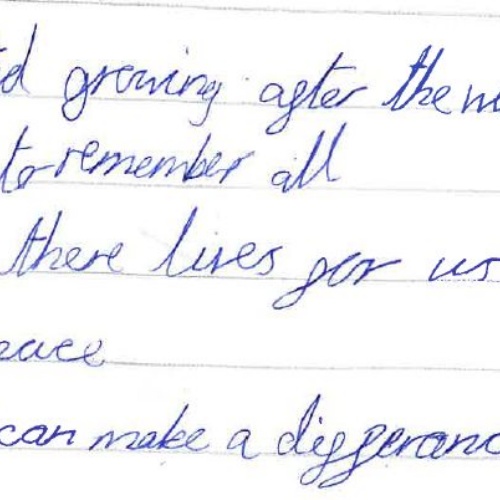 growing after the
to remember all
there lives for us
eace
can make a differanc